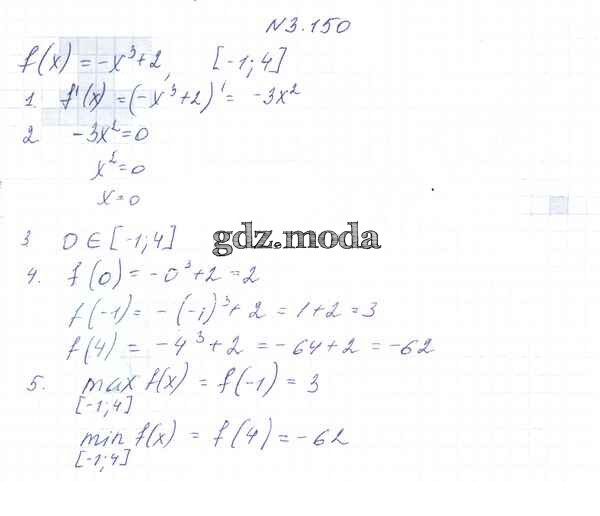 N3.150
f(x) = -x³+2, [-1;4]
1. f'(x) = (-x³+2)' = -3x²
2 -3x²=0
x²=0
x=0
3 0 ∈ [-1;4]
gdz.moda
4. f(0) = -0³+2=2
f(-1) = -(-1)³+2 = 1+2=3
f(4) = -4³+2 = -64+2 = -62
5. max f(x) = f(-1) = 3
[-1;4]
min f(x) = f(4) = -62
[-1;4]